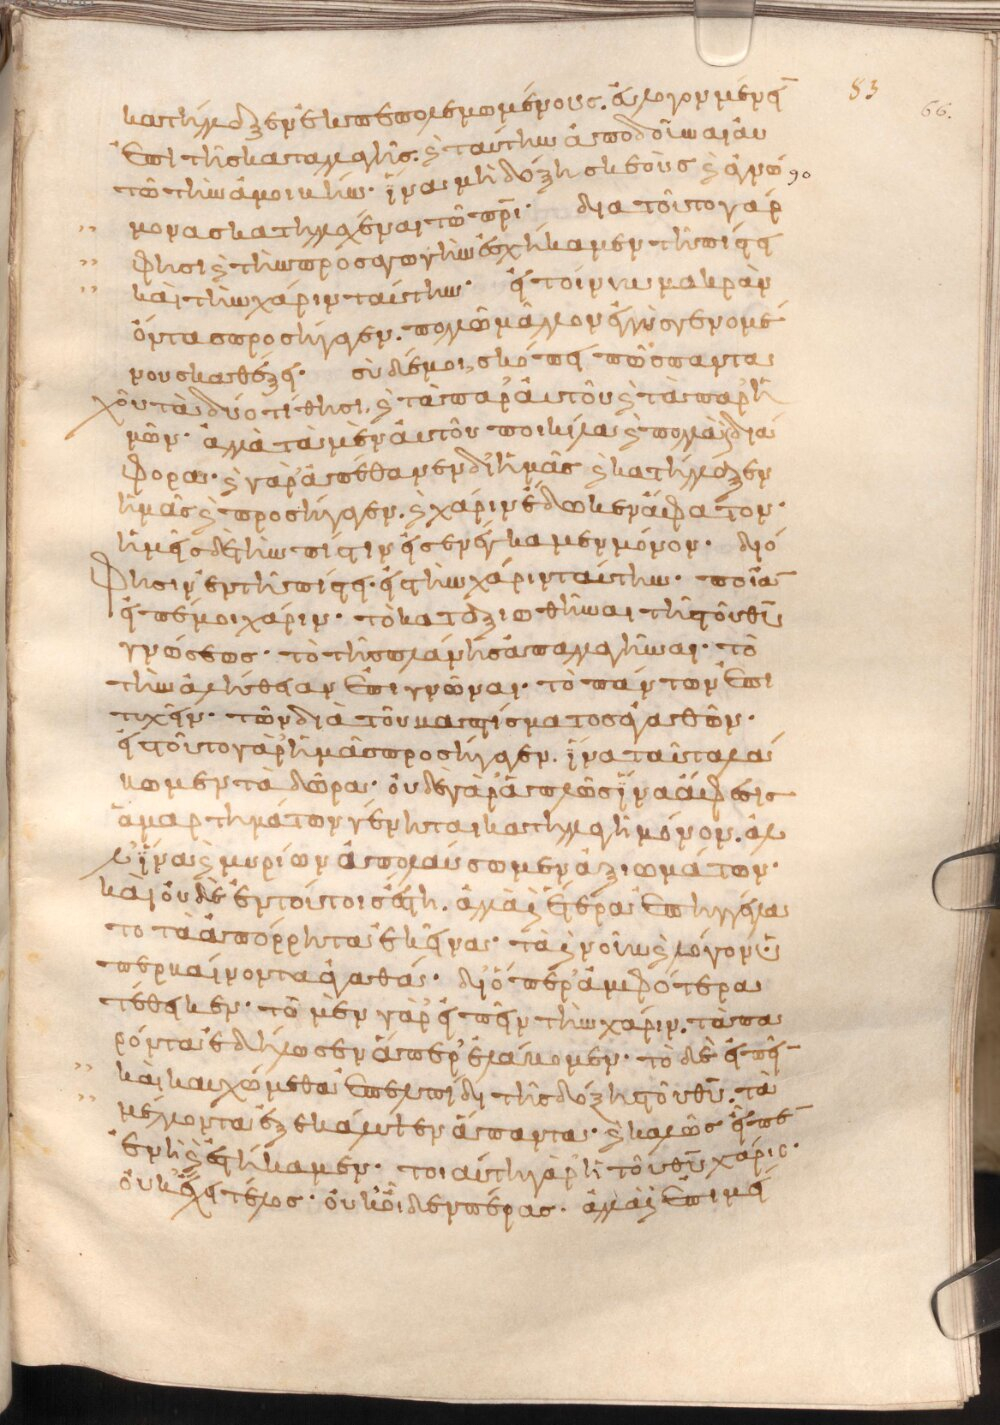 κατήλλαξεν ἐκπεπολεμωμένους. εὔλογον μένειν
ἐπὶ τῆς καταλλαγῆς. καὶ ταύτην ἀποδοῦναι αὐ
τῶ τὴν ἀμοιβήν. ἵνα μὴ δόξη σκαιοὺς καὶ ἀγνώ
μονας κατηλλαχέναι τῶ πρι. δια τοῦτο γάρ
φησι καὶ τὴν προσαγωγὴν ἐσχήκαμεν τῆ πίστει
καὶ τὴν χάριν ταύτην. εἰ τοίνυν μακρὰν
ὄντας προσήγαγεν. πολλῶ μᾶλλον ἐγγὺς γενομέ
νους καθέξει. σὺ δέ μοι, σκόπει πῶς παντα
χοῦ τὰ δύο τίθησι, καὶ τὰ παρ' αὐτοῦ καὶ τὰ παρ' ἡ
μῶν. ἀλλὰ τὰ μὲν αὐτοῦ ποικίλα καὶ πολλὰ καὶ διά
φορα. καὶ γὰρ ἀπέθανεν δι' ἡμᾶς καὶ κατήλλαξεν
ἡμᾶς καὶ προσήγαγεν. καὶ χάριν ἔδωκεν ἄφατον.
ἡμεῖς δὲ τὴν πίστιν εἰσενέγκαμεν μόνον. διό
φησιν ἐν τῆ πίστει. εἰς τὴν χάριν ταύτην. ποίαν
εἰπέ μοι χάριν. τὸ καταξιωθῆναι τῆς τοῦ θυ
γνώσεως. τὸ τῆς πλάνης ἀπαλλαγῆναι. τὸ
τὴν ἀλήθειαν ἐπιγνῶναι. τὸ πάντων ἐπι
τυχεῖν. τῶν διὰ τοῦ βαπτίσματος ἀγαθῶν.
εἰς τοῦτο γὰρ ἡμᾶς προσήγαγεν. ἵνα ταῦτα λά
βωμεν τὰ δῶρα. οὐδὲ γὰρ ἁπλῶς ἵνα ἄφεσις
ἁμαρτημάτων γένηται καταλλαγῆ μόνον. ἀλ
λ' ἵνα καὶ μυρίων ἀπολαύσωμεν ἀξιωμάτων.
καὶ οὐδὲ ἐν τούτοις ἔστη. ἀλλὰ καὶ ἕτερα ἐπηγγείλα
το τὰ ἀπόρρητα ἐκεῖνα. τὰ καὶ νοῦν καὶ λόγον ὑ
περβαίνοντα ἀγαθά. διόπερ ἀμφότερα
τέθεικεν. τῶ μὲν γὰρ εἰπεῖν τὴν χάριν. τὰ πα
ρόντα ἐδήλωσεν ἅπερ ἐλάβομεν. τὸ δὲ εἰπεῖν
καὶ καυχώμεθα ἐπελπίδι τῆς δόξης τοῦ θυ. τὰ
μέλλοντα ἐξεκάλυψεν ἅπαντα. καὶ καλῶς εἶπεν
ἐν ἧ καὶ ἑστήκαμεν. τοιαύτη γὰρ ἡ τοῦ θυ χάρις.
οὐκ ἔχει τέλος. οὐκ οἶδεν πέρας. ἀλλὰ καὶ ἐπὶ μεί
83
66.
90